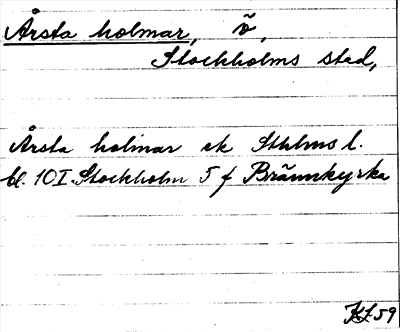 Årsta holmar, ö,
Stockholms stad,
Årsta holmar ek Sthlms l.
bl. 10 I. Stockholm 5 f Brännkyrka
KL 59